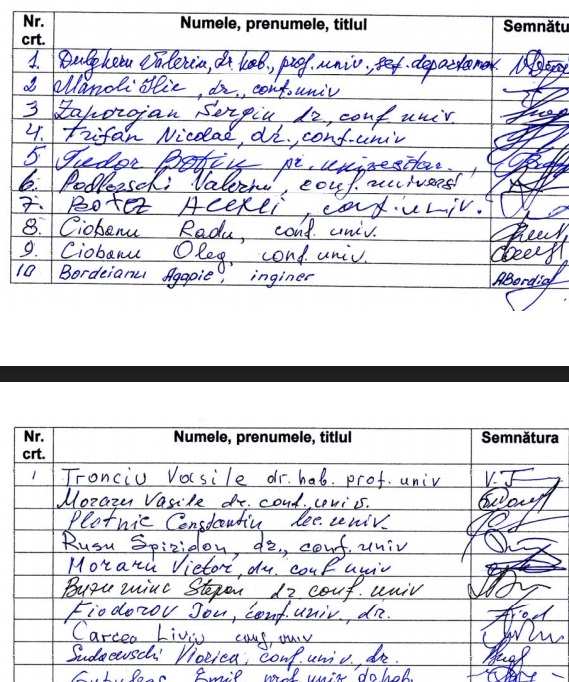 Nr. crt. Numele, prenumele, titlul Semnătu
1. Dulgheru Valeriu, dr. hab., prof. univ., șef. departament
2 Manoli Ilie, dr., conf. univ
3 Zaporojan Sergiu dr, conf univ.
4. Trifan Nicolae, dr., conf. univ
5 Tudor
6. Podlesschi Valeriu, conf. univers
7. Botez Alexei, conf. univ.
8. Ciobanu Radu, conf. univ.
9. Ciobanu Oleg, conf. univ.
10 Bordeianu Agapie, inginer ABordia
Nr. crt. Numele, prenumele, titlul Semnătura
1 Tronciu Vasile dr. hab. prof. univ V. T
Moraru Vasile dr. conf. univ.
Plotnic Constantin lec. univ.
Rusu Spiridon, dr., conf. univ
Moraru Victor, dr. conf univ
Stepan dr conf. univ
Fiodorov Ion, conf. univ., dr. Fiod
Carcea Liviu conf. univ
Sudacevschi Viorica, conf. univ., dr.
Guțuleac Emil prof. univ. dr. hab.